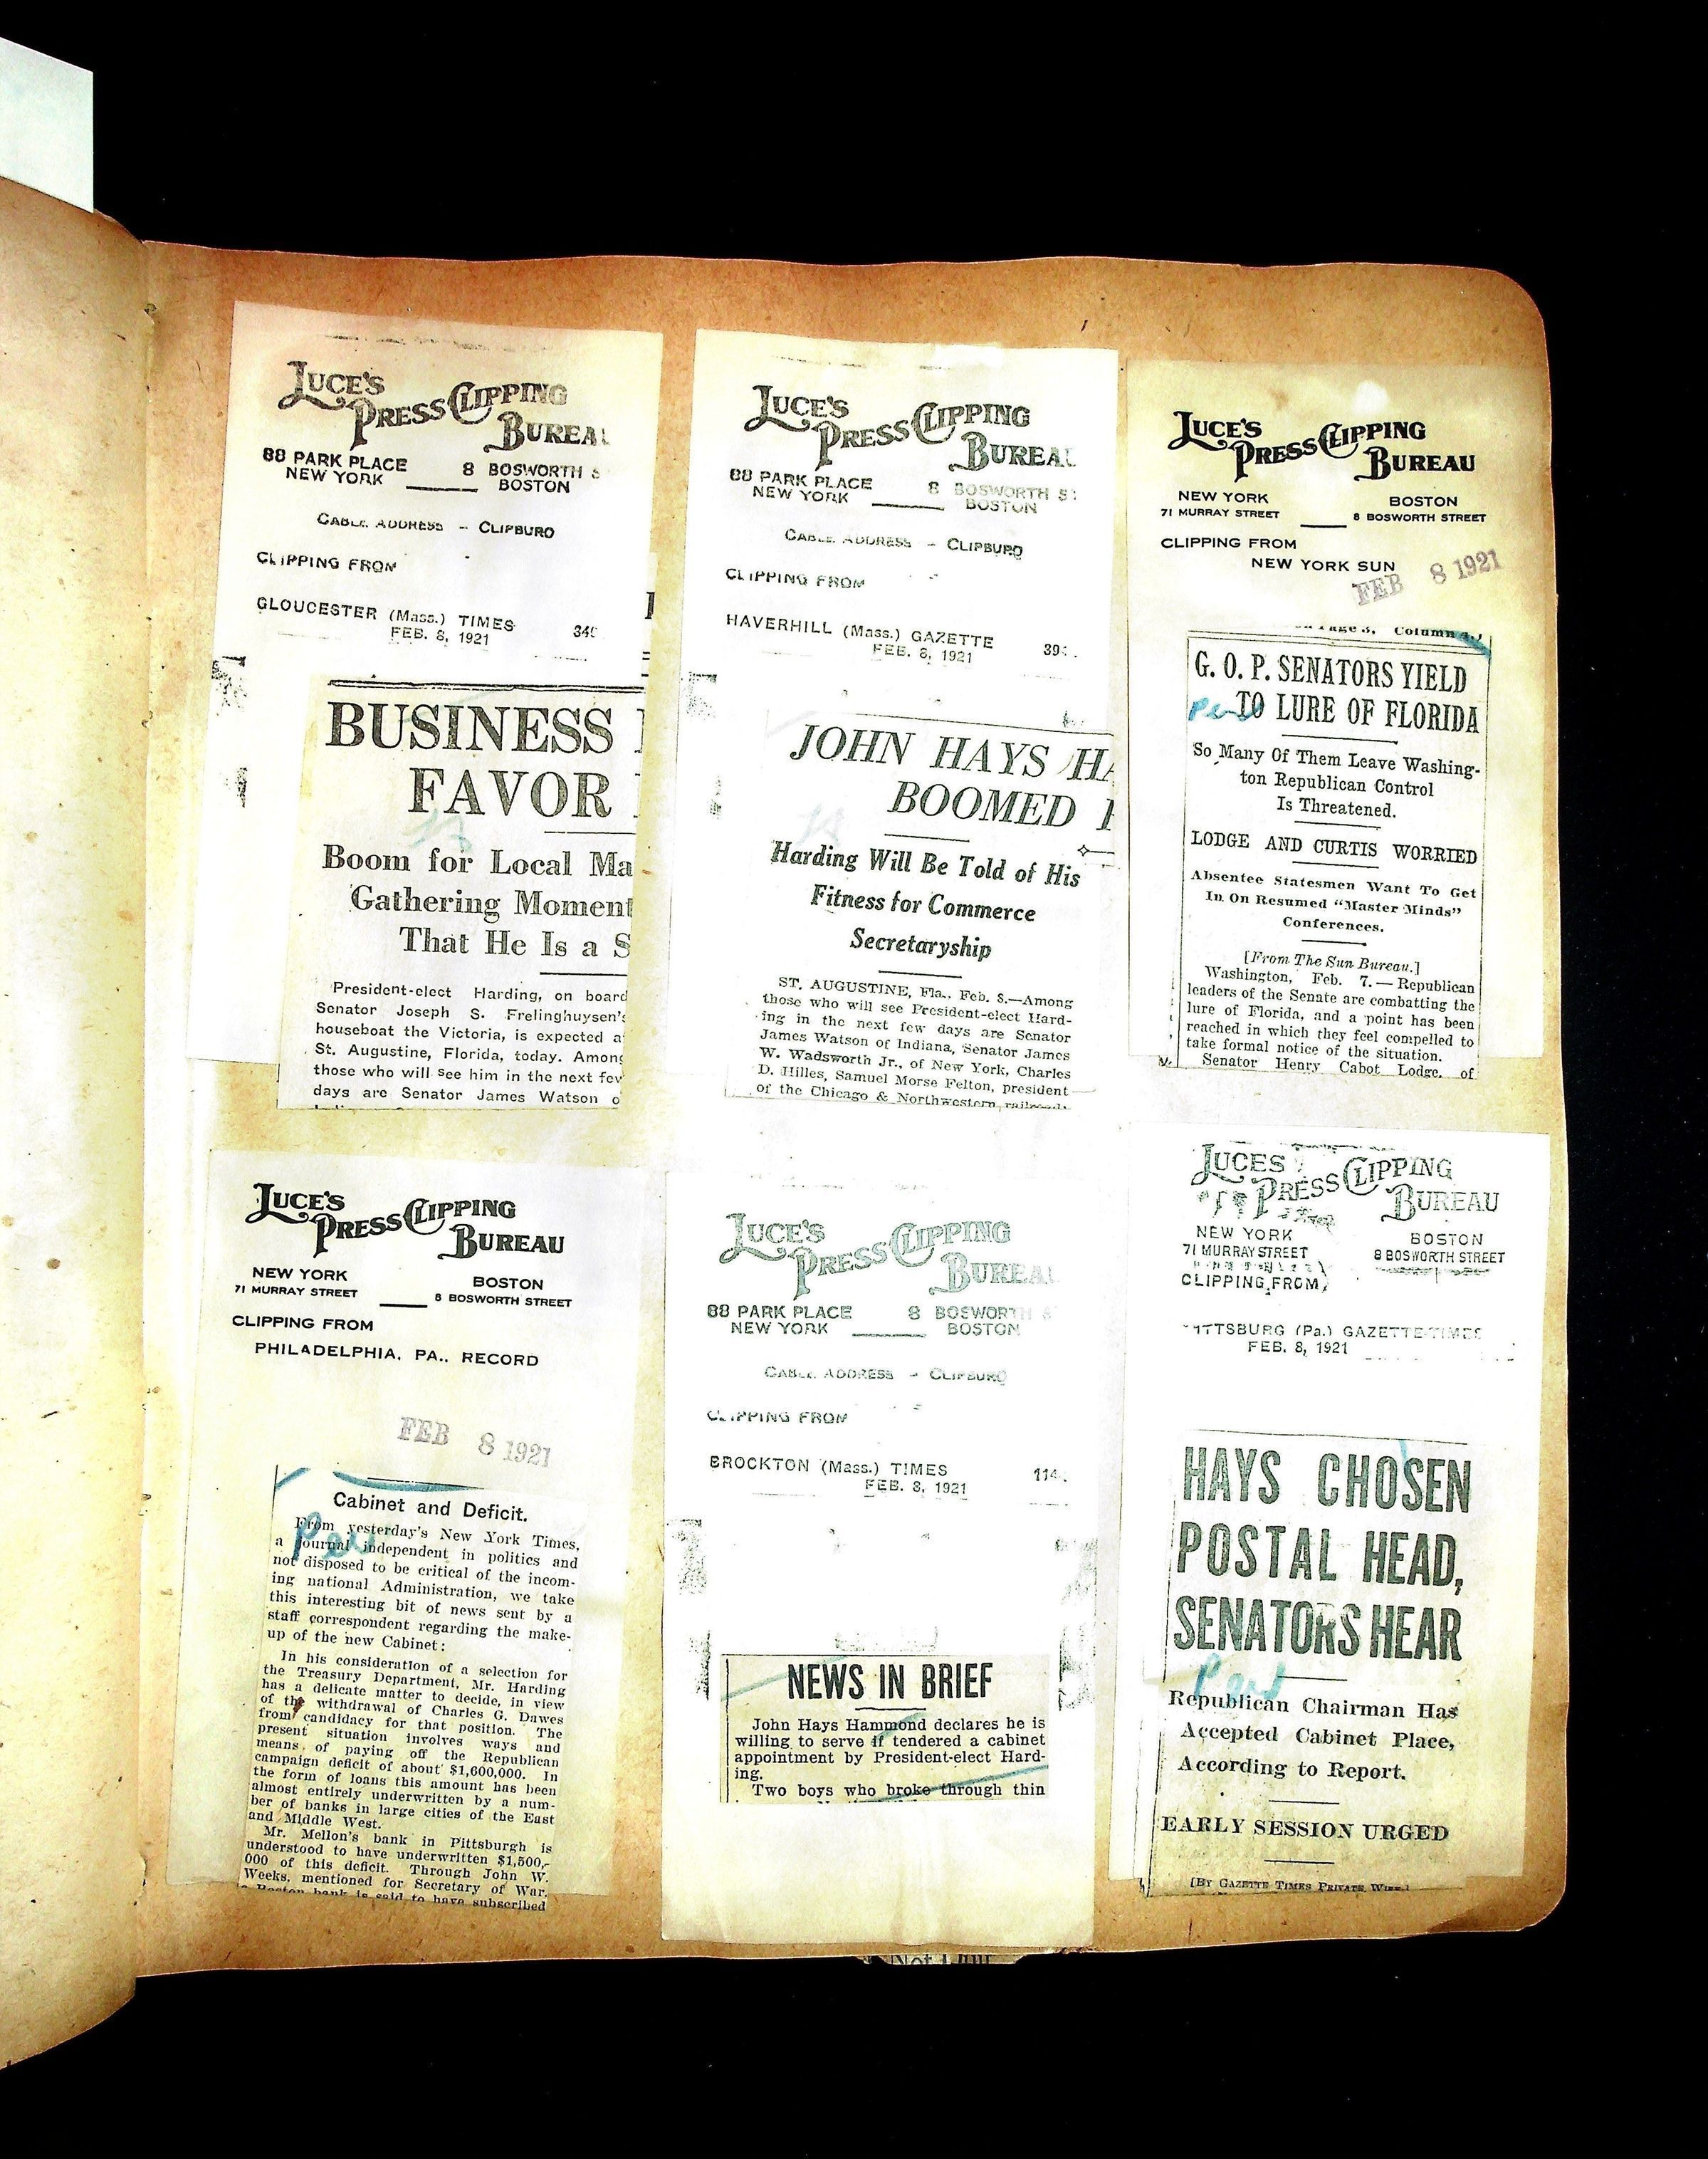 LUCE'S
PRESS CLIPPING
BUREAU
88 PARK PLACE 8 BOSWORTH S
NEW YORK BOSTON
CABLE ADDRESS - CLIPBURO
CLIPPING FROM
GLOUCESTER (Mass.) TIMES
FEB. 8, 1921
BUSINESS
FAVOR
Boom for Local Ma
Gathering Moment
That He Is a S
President-elect Harding, on board
Senator Joseph S. Frelinghuysen's
houseboat the Victoria, is expected a
St. Augustine, Florida, today. Among
those who will see him in the next few
days are Senator James Watson o
LUCE'S
PRESS CLIPPING
BUREAU
88 PARK PLACE 8 BOSWORTH ST
NEW YORK BOSTON
CABLE ADDRESS - CLIPBURO
CLIPPING FROM
HAVERHILL (Mass.) GAZETTE
FEB. 8, 1921
JOHN HAYS HA
BOOMED
Harding Will Be Told of His
Fitness for Commerce
Secretaryship
ST. AUGUSTINE, Fla., Feb. 8.—Among
those who will see President-elect Hard-
ing in the next few days are Senator
James Watson of Indiana, Senator James
W. Wadsworth Jr., of New York, Charles
D. Hilles, Samuel Morse Felton, president
of the Chicago & Northwestern railroad
LUCE'S
PRESS CLIPPING
BUREAU
NEW YORK BOSTON
71 MURRAY STREET 8 BOSWORTH STREET
CLIPPING FROM
NEW YORK SUN
FEB 8 1921
Page 3, Column 4.)
G. O. P. SENATORS YIELD
TO LURE OF FLORIDA
So Many Of Them Leave Washing-
ton Republican Control
Is Threatened.
LODGE AND CURTIS WORRIED
Absentee Statesmen Want To Get
In On Resumed "Master Minds"
Conferences.
[From The Sun Bureau.]
Washington, Feb. 7.—Republican
leaders of the Senate are combatting the
lure of Florida, and a point has been
reached in which they feel compelled to
take formal notice of the situation.
Senator Henry Cabot Lodge, of
LUCE'S
PRESS CLIPPING
BUREAU
NEW YORK BOSTON
71 MURRAY STREET 8 BOSWORTH STREET
CLIPPING FROM
PHILADELPHIA, PA., RECORD
FEB 8 1921
Cabinet and Deficit.
From yesterday's New York Times,
a journal independent in politics and
not disposed to be critical of the incom-
ing national Administration, we take
this interesting bit of news sent by a
staff correspondent regarding the make-
up of the new Cabinet:
In his consideration of a selection for
the Treasury Department, Mr. Harding
has a delicate matter to decide, in view
of the withdrawal of Charles G. Dawes
from candidacy for that position. The
present situation involves ways and
means of paying off the Republican
campaign deficit of about $1,600,000. In
the form of loans this amount has been
almost entirely underwritten by a num-
ber of banks in large cities of the East
and Middle West.
Mr. Mellon's bank in Pittsburgh is
understood to have underwritten $1,500,-
000 of this deficit. Through John W.
Weeks, mentioned for Secretary of War,
a Boston bank is said to have subscribed
LUCE'S
PRESS CLIPPING
BUREAU
88 PARK PLACE 8 BOSWORTH S
NEW YORK BOSTON
CABLE ADDRESS - CLIPBURO
CLIPPING FROM
BROCKTON (Mass.) TIMES
FEB. 8, 1921
NEWS IN BRIEF
John Hays Hammond declares he is
willing to serve if tendered a cabinet
appointment by President-elect Hard-
ing.
Two boys who broke through thin
LUCE'S
PRESS CLIPPING
BUREAU
NEW YORK BOSTON
71 MURRAY STREET 8 BOSWORTH STREET
CLIPPING FROM
PITTSBURG (Pa.) GAZETTE-TIMES
FEB. 8, 1921
HAYS CHOSEN
POSTAL HEAD,
SENATORS HEAR
Republican Chairman Has
Accepted Cabinet Place,
According to Report.
EARLY SESSION URGED
[BY GAZETTE TIMES PRIVATE WIRE.]